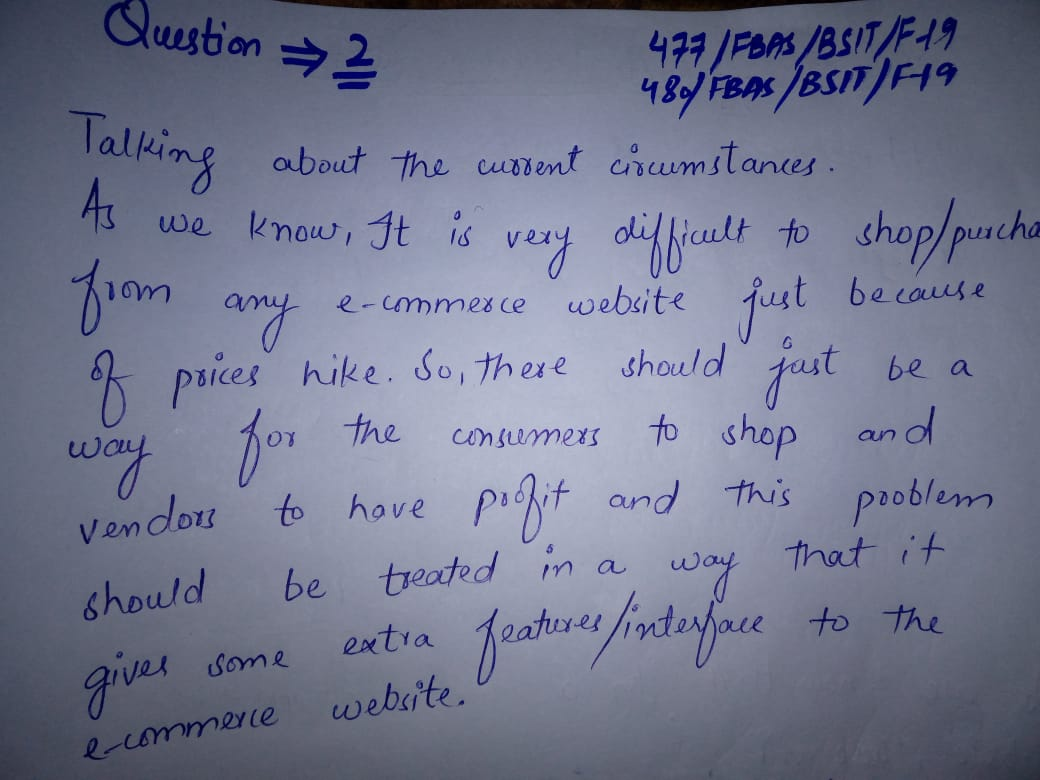 Question ⇒ 2
477/FBAS/BSIT/F-19
480/FBAS/BSIT/F-19
Talking about the current circumstances.
As we know, It is very difficult to shop/purcha
from any e-commerce website just because
of prices hike. So, there should just be a
way for the consumers to shop and
vendors to have profit and this problem
should be treated in a way that it
gives some extra features/interface to the
e-commerce website.